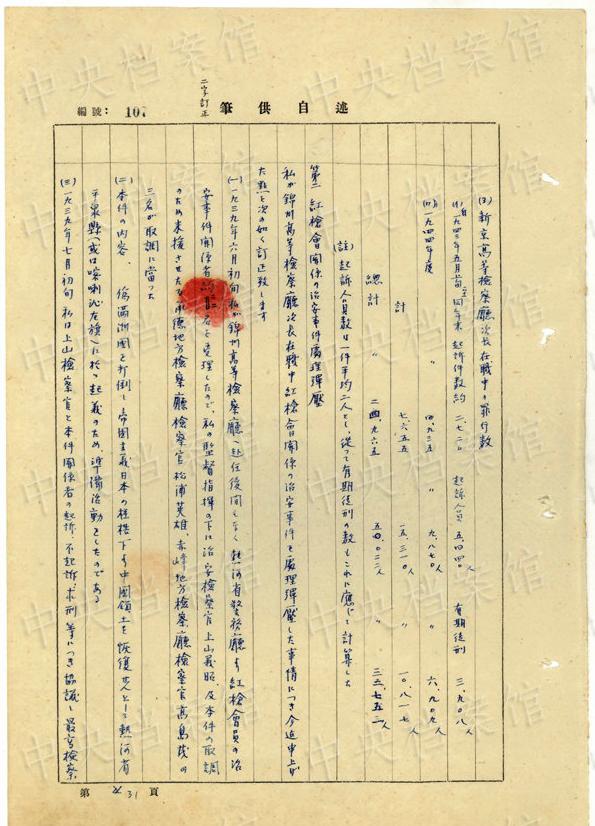 編號： 107
筆供自述
二字訂正
(3) 新京高等検察庁次長在職中の罪行数
(イ) 一九四三年五月 同年末 起訴件数約 二、七二〇 起訴人員 五、四四〇人 有期徒刑 三、九〇八人
(ロ) 一九四四年度 〃 四、九三五 〃 九、八七〇人 〃 六、九〇九人
計 七、六五五 一五、三一〇人 一〇、八一七人
総計 〃 二四、九六五 五〇、〇二二人 〃 三五、七五二人
(註) 起訴人員数は一件平均二人とし、従って有期徒刑の数もこれに應じて計算した
第二 紅槍會関係の治安事件處理弾壓
私が錦州高等検察廳次長在職中紅槍會関係の治安事件を處理弾壓した事情につき今迄申上げ
た點を次の如く訂正致します
(一) 一九三九年六月初旬私が錦州高等検察廳へ赴任後間もなく熱河省警務廳より紅槍會員の治
安事件関係者 名を受理したので、私の監督指揮の下に治安検察官上山義昭、及本件の取調
のため来援させたる承徳地方検察廳検察官松浦英雄、赤峰地方検察廳検察官高島茂の
三名が取調に當った
(二) 本件の内容、偽満洲國を打倒し帝國主義日本の桎梏下より中國領土を恢復せんとして熱河省
平泉縣(或は喀喇沁左旗)に於て起義のため、準備活動をしたのである
(三) 一九三九年七月初旬 私は上山検察官と本件関係者の起訴、不起訴、求刑等につき協議し最高検察
第 31 頁
中央档案馆